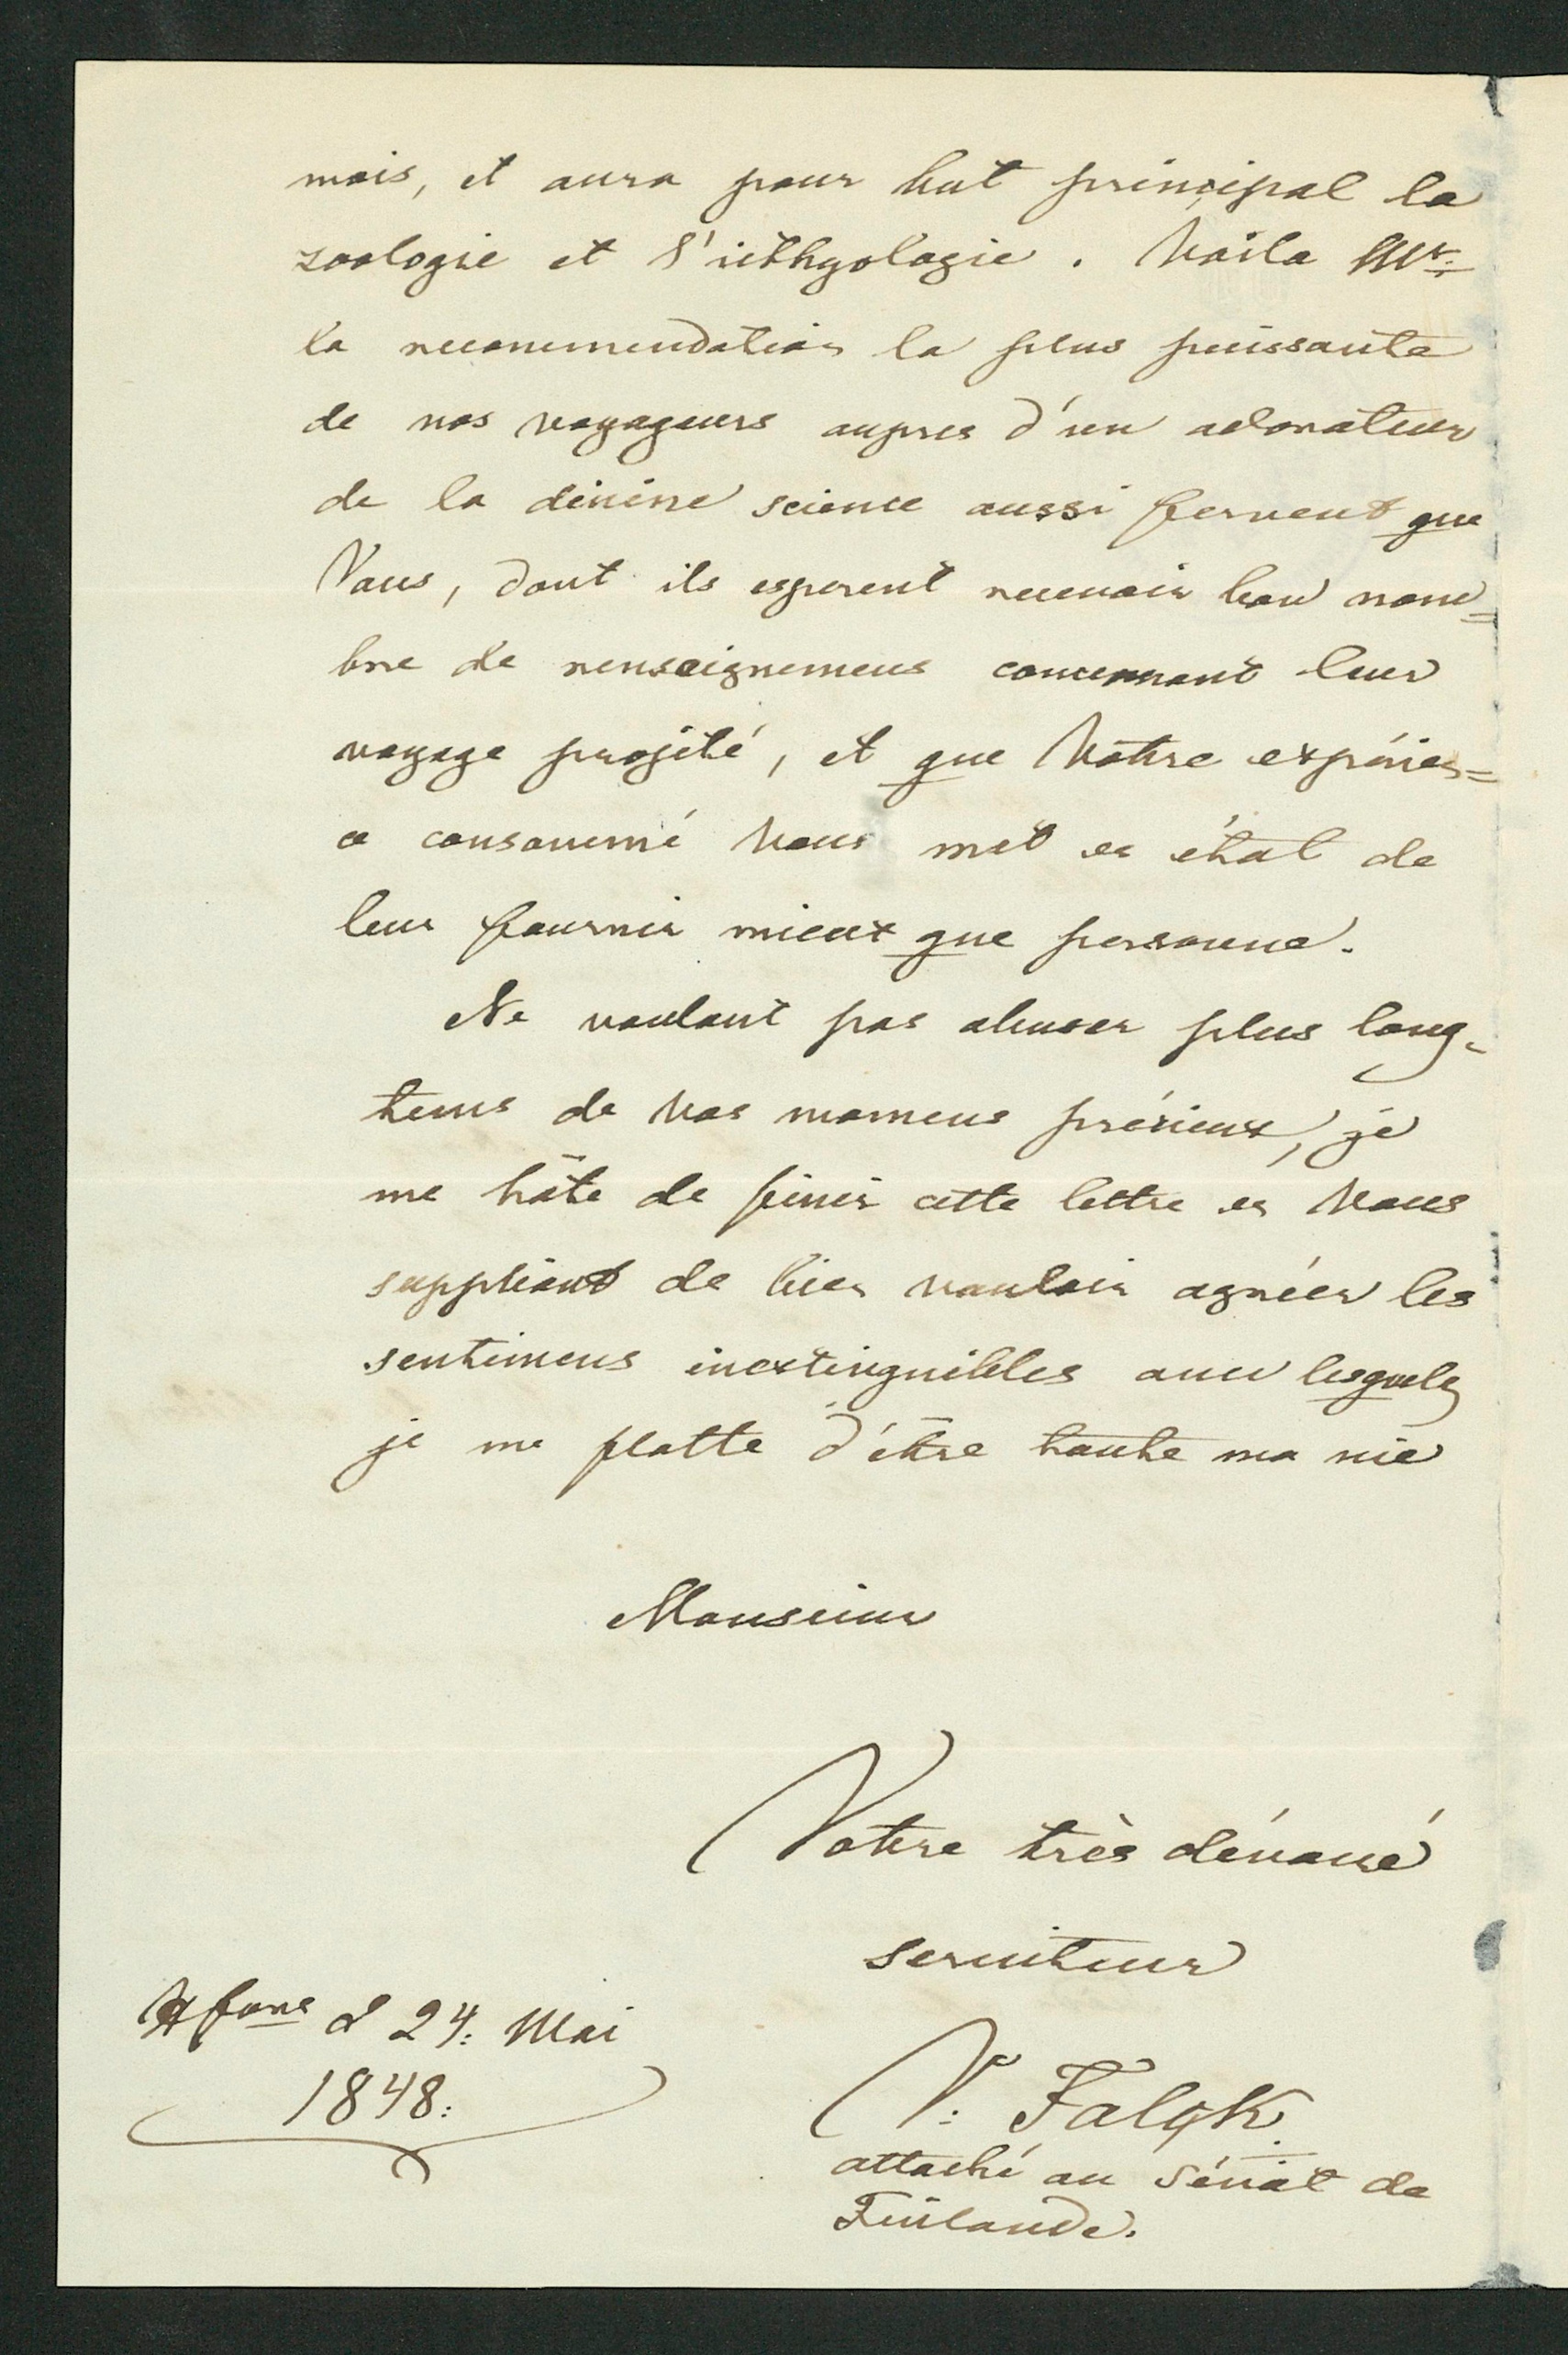 mois, et aura pour but principal la
zoologie et l'icthyologie. Voila Mr:
la recommendation la plus puissante
de nos voyageurs aupres d'un adorateur
de la divine science aussi fervent que
Vous, dont ils esperent recevoir bon nom=
bre de renseignemens concernant leur
voyage projété, et que Votre expérien=
ce consommé Vous met en état de
leur fournir mieux que personne.
Ne voulant pas abuser plus long-
tems de Vos momens précieux, je
me hâte de finir cette lettre en Vous
suppliant de bien vouloir agréer les
sentimens inextinguibles avec lesquels
je me flatte d'être toute ma vie
Monsieur
Votre très dévoué
serviteur
Hfors d 24: Mai
1848:
V: Falck
attaché au Sénat de
Finlande.